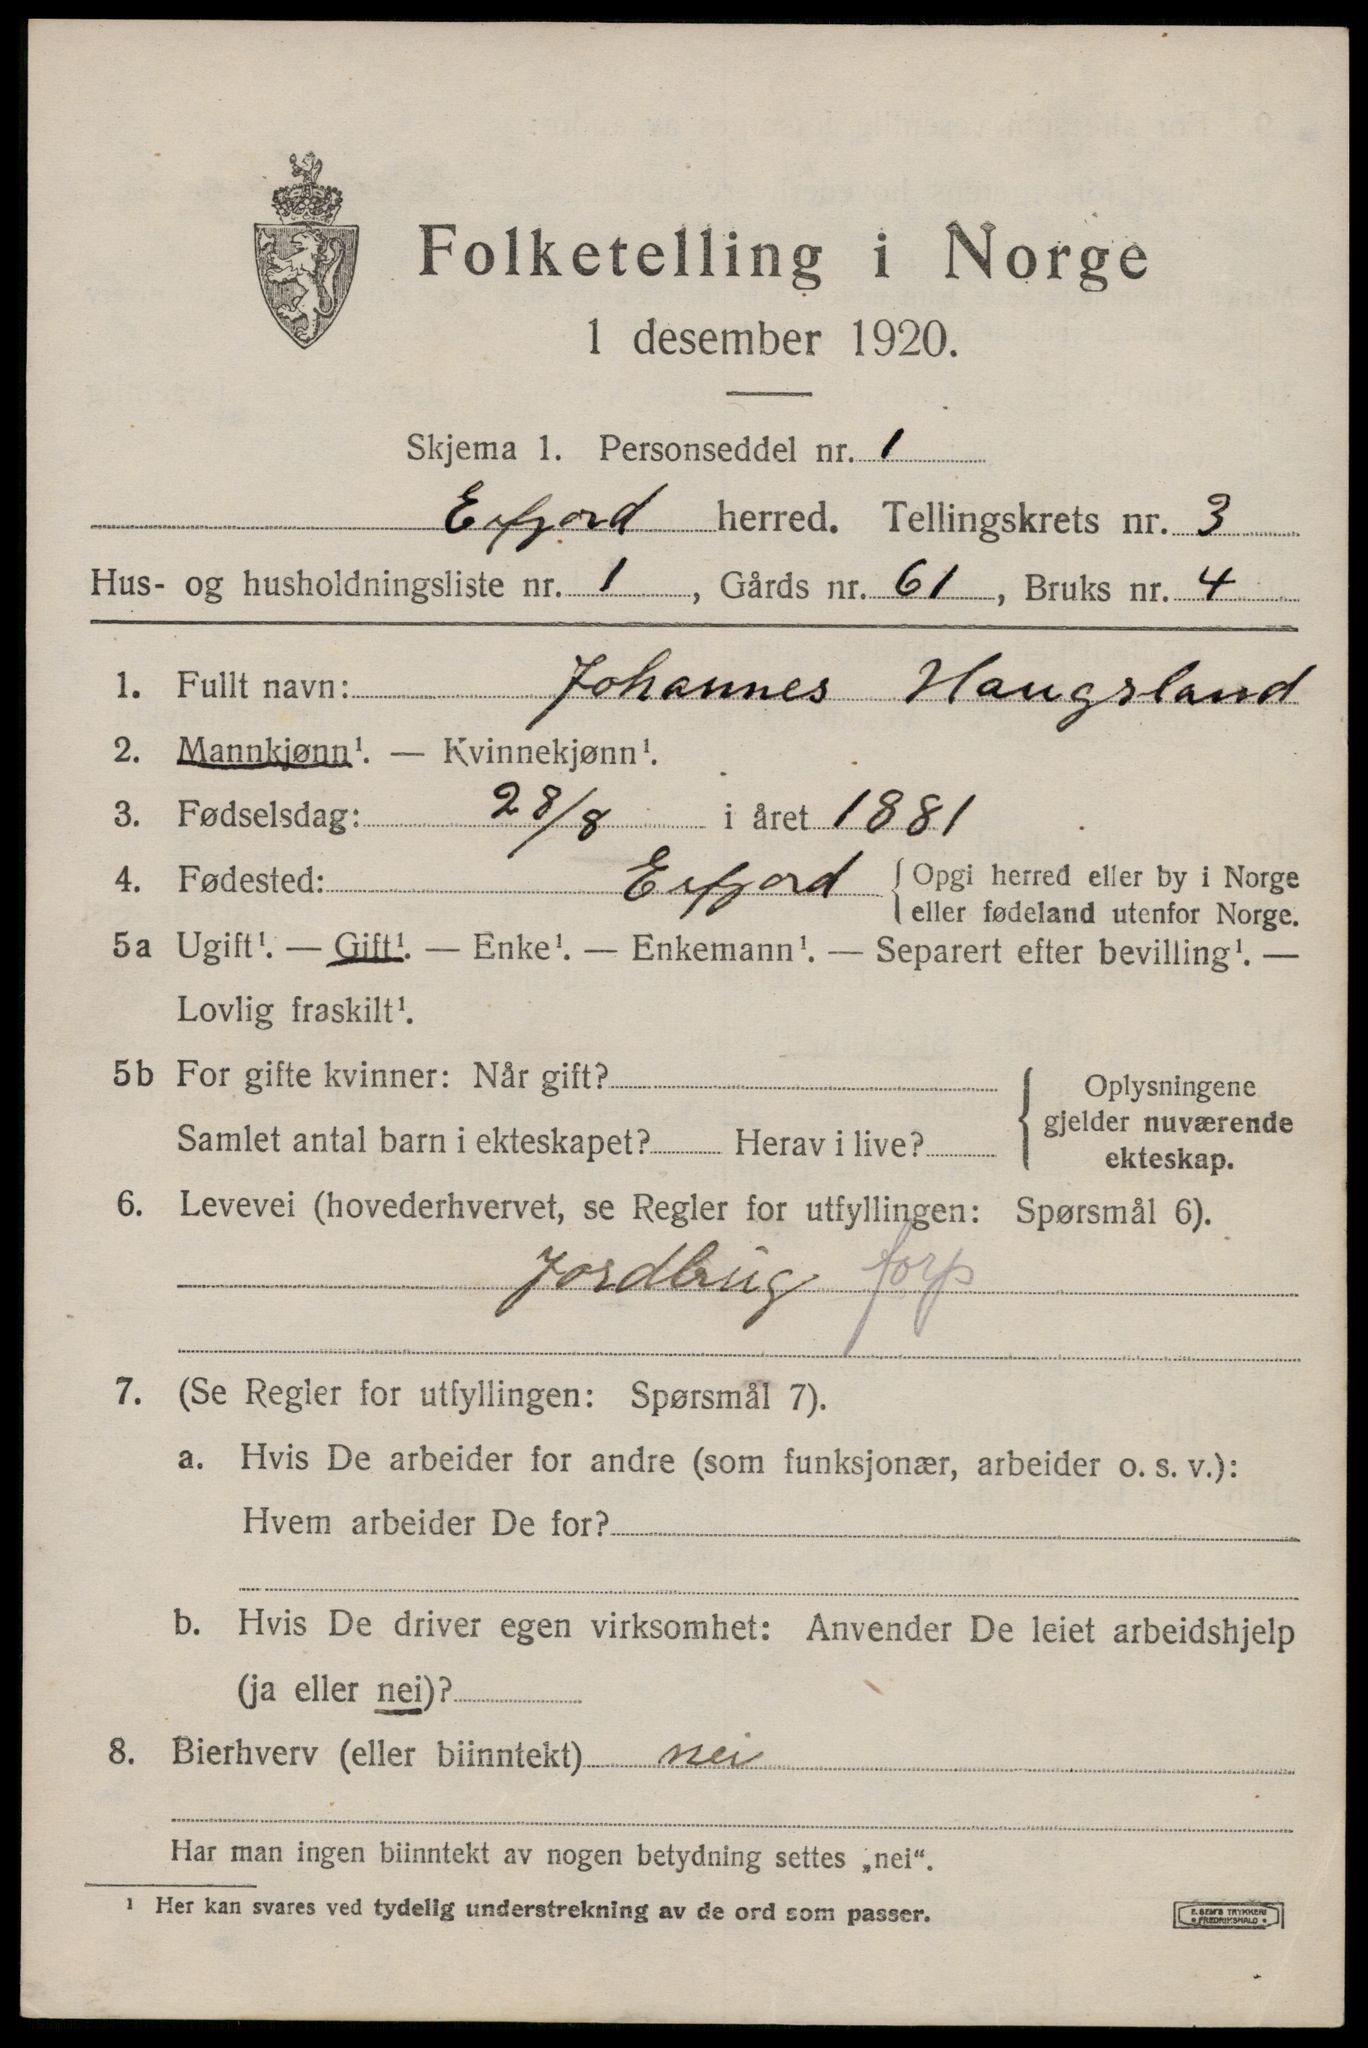 Folketelling i Norge
1 desember 1920.
Skjema 1. Personseddel nr. 1
Erfjord herred. Tellingskrets nr. 3
Hus- og husholdningsliste nr. 1, Gårds nr. 61, Bruks nr. 4
1. Fullt navn: Johannes Haugsland
2. Mannkjønn¹. — Kvinnekjønn¹.
3. Fødselsdag: 28/8 i året 1881
4. Fødested: Erfjord { Opgi herred eller by i Norge
eller fødeland utenfor Norge.
5a Ugift¹. — Gift¹. — Enke¹. — Enkemann¹. — Separert efter bevilling¹. —
Lovlig fraskilt¹.
5b For gifte kvinner: Når gift?
Samlet antal barn i ekteskapet? Herav i live?
{ Oplysningene
gjelder nuværende
ekteskap.
6. Levevei (hovederhvervet, se Regler for utfyllingen: Spørsmål 6).
Jordbrug forp
7. (Se Regler for utfyllingen: Spørsmål 7).
a. Hvis De arbeider for andre (som funksjonær, arbeider o. s. v.):
Hvem arbeider De for?
b. Hvis De driver egen virksomhet: Anvender De leiet arbeidshjelp
(ja eller nei)?
8. Bierhverv (eller biinntekt) nei
Har man ingen biinntekt av nogen betydning settes „nei“.
¹ Her kan svares ved tydelig understrekning av de ord som passer.
E. SEM'S TRYKKERI
• FREDRIKSHALD •